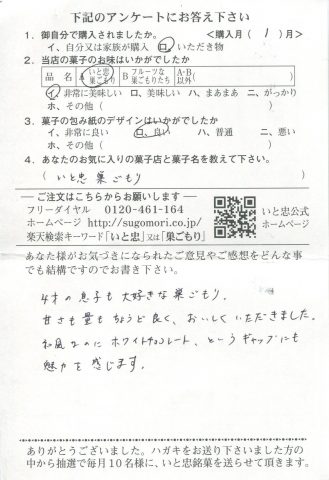 下記のアンケートにお答え下さい
1. 御自分で購入されましたか。 <購入月( 1 )月>
イ、自分又は家族が購入 ロ、いただき物
2. 当店の菓子のお味はいかがでしたか
品名 A いと忠巣ごもり B フルーツな巣ごもりたち A・B、以外( )
イ、非常に美味しい ロ、美味しい ハ、まあまあ ニ、がっかり
ホ、その他( )
3. 菓子の包み紙のデザインはいかがでしたか
イ、非常に良い ロ、良い ハ、普通 ニ、悪い
ホ、その他( )
4. あなたのお気に入りの菓子店と菓子名を教えて下さい。
( いと忠 巣ごもり )
―ご注文はこちらからお願いします―
フリーダイヤル 0120-461-164
ホームページ http://sugomori.co.jp/
楽天検索キーワード「いと忠」又は「巣ごもり」
いと忠公式
ホームページ
あなた様がお気づきになられたご意見やご感想をどんな事
でも結構ですのでお書き下さい。
4才の息子も大好きな巣ごもり。
甘さも量もちょうど良く、おいしくいただきました。
和風なのにホワイトチョコレート、というギャップにも
魅力を感じます。
ありがとうございました。ハガキをお送り下さいました方の
中から抽選で毎月10名様に、いと忠銘菓を送らせて頂きます。